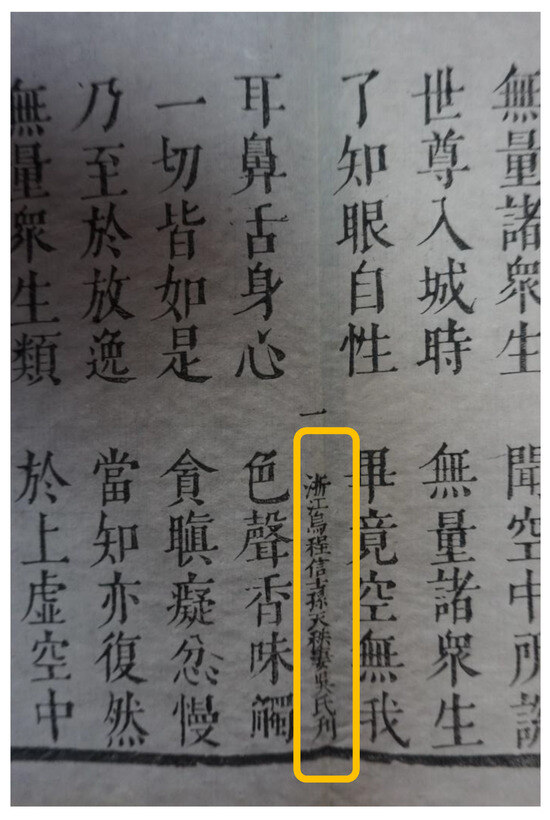 無量諸衆生　聞空中所說
世尊入城時　無量諸衆生
了知眼自性　畢竟空無我
一　浙江烏程信士孫天秩妻吳氏刊
耳鼻舌身心　色聲香味觸
一切皆如是　貪瞋癡忿慢
乃至於放逸　當知亦復然
無量衆生類　於上虛空中